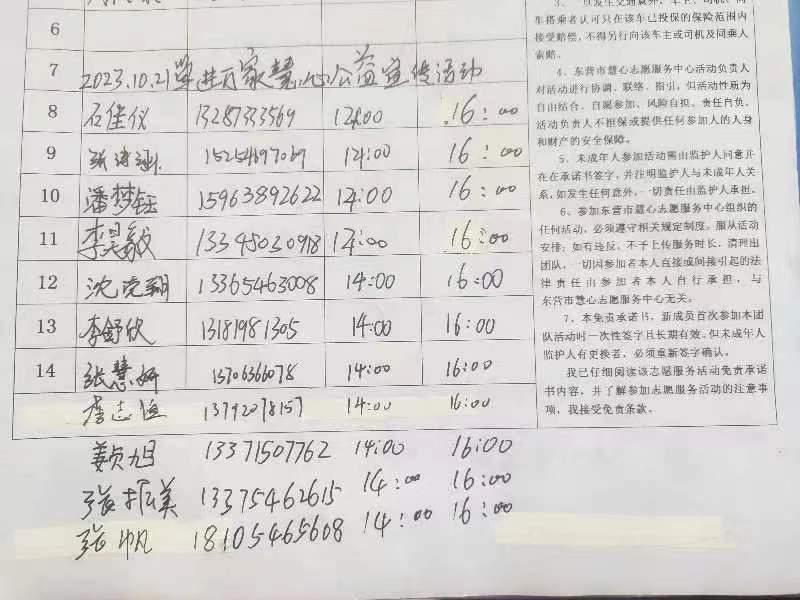 6
7 2023.10.21 学进万家慧心公益宣传活动
8 石佳仪 13287333569 12:00 16:00
9 15254697069 14:00 16:00
10 潘梦钰 15963892622 14:00 16:00
11 李昊毅 13345030918 14:00 16:00
12 沈克翔 13365463008 14:00 16:00
13 李舒欣 13181981305 14:00 16:00
14 张慧妍 15706366078 14:00 16:00
李志恒 13792078157 14:00 16:00
姜旭 13371507762 14:00 16:00
张振美 13375462615 14:00 16:00
张帆 18105465608 14:00 16:00
3、一旦发生交通意外，车主、司机、同
车搭乘者认可只在该车已投保的保险范围内
接受赔偿，不得另行向该车主或司机及同乘人
索赔。
4、东营市慧心志愿服务中心活动负责人
对活动进行协调、联络、指引，但活动性质为
自由结合、自愿参加、风险自担、责任自负，
活动负责人不担保或提供任何参加人的人身
和财产的安全保障。
5、未成年人参加活动需由监护人同意并
在在承诺书签字，并注明监护人与未成年人关
系，如发生任何意外，一切责任由监护人承担。
6、参加东营市慧心志愿服务中心组织的
任何活动，必须遵守相关规定制度，服从活动
安排；如有违反，不予上传服务时长，清理出
团队，一切因参加者本人直接或间接引起的法
律责任由参加者本人自行承担，与
东营市慧心志愿服务中心无关。
7、本免责承诺书，新成员首次参加本团
队活动时一次性签字且长期有效。但未成年人
监护人有更换者，必须重新签字确认。
我已仔细阅读该志愿服务活动免责承诺
书内容，并了解参加志愿服务活动的注意事
项，我接受免责条款。